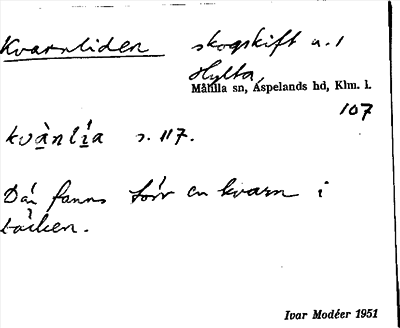 Kvarnliden skogskift u. 1
Hylta,
Målilla sn, Aspelands hd, Klm. l.
107
kvànlía s. 117.
Där fanns förr en kvarn i
bäcken.
Ivar Modéer 1951